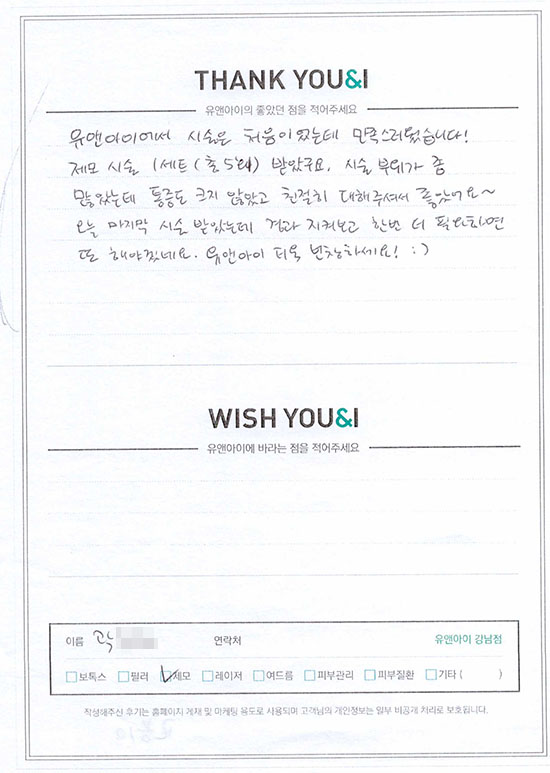 THANK YOU&I
유앤아이의 좋았던 점을 적어주세요
유앤아이에서 시술은 처음이었는데 만족스러웠습니다!
제모 시술 1세트(총 5회) 받았구요, 시술 부위가 좀
많았는데 통증도 크지 않았고 친절히 대해주셔서 좋았어요~
오늘 마지막 시술 받았는데 경과 지켜보고 한번 더 필요하면
또 해야겠네요. 유앤아이 더욱 번창하세요! :)
WISH YOU&I
유앤아이에 바라는 점을 적어주세요
이름 곽 연락처 유앤아이 강남점
보톡스 필러 제모 레이저 여드름 피부관리 피부질환 기타 ( )
작성해주신 후기는 홈페이지 게재 및 마케팅 용도로 사용되며 고객님의 개인정보는 일부 비공개 처리로 보호됩니다.